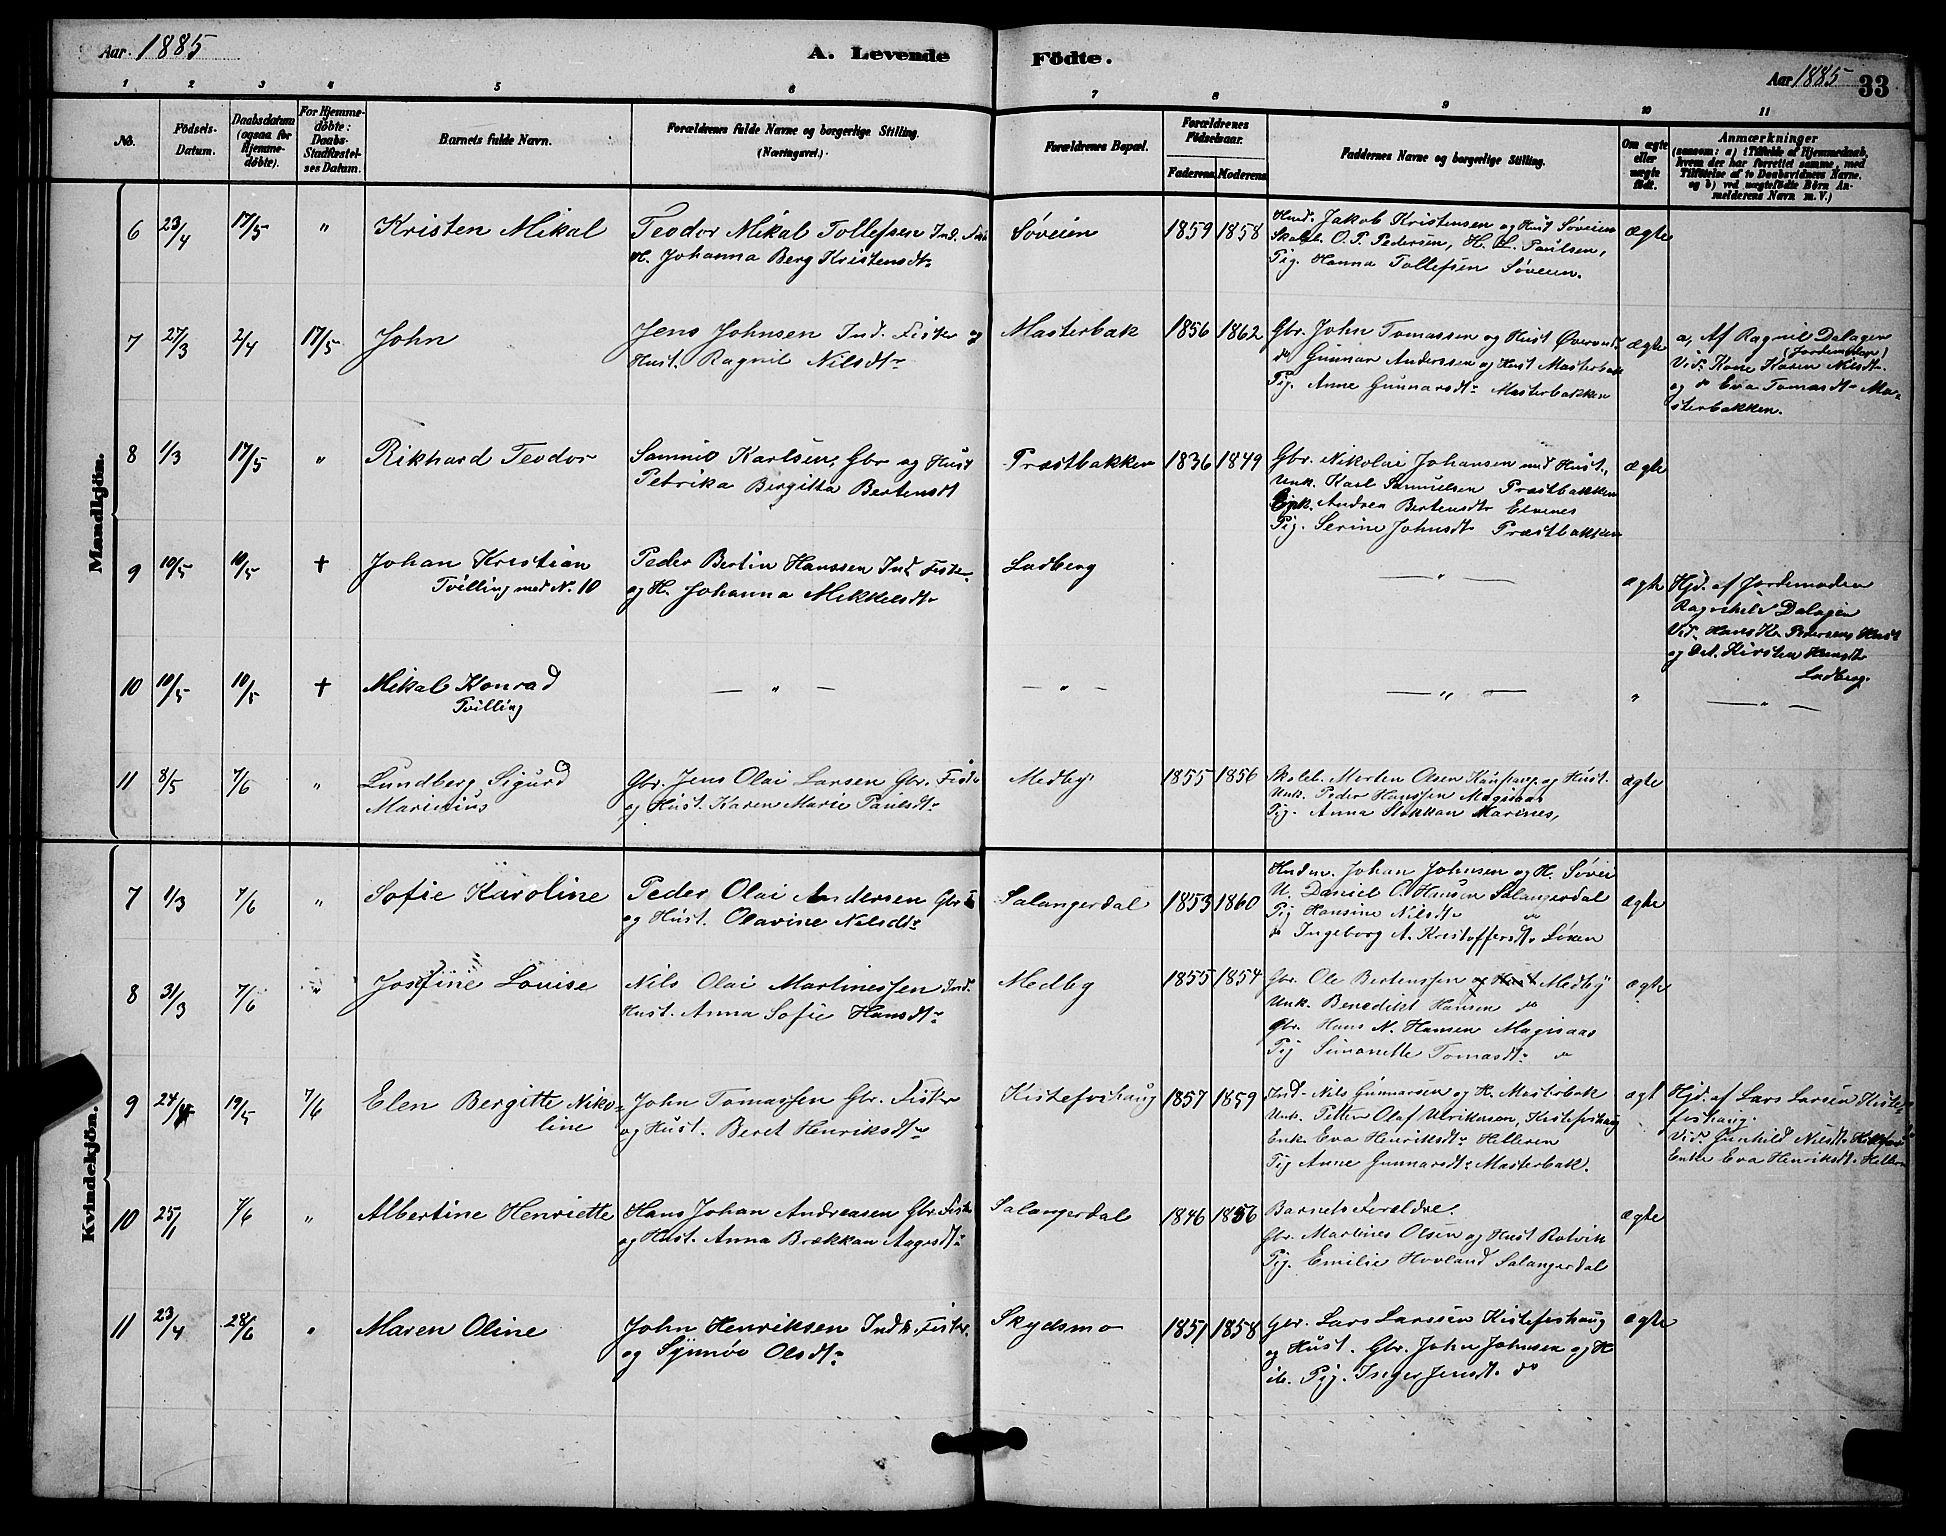 Aar. 1885
A. Levende
Födte.
Aar 1885
33
1 2 3 4 5 6 7 8 9 10 11
No.
Födsels-Datum.
Daabsdatum (ogsaa for Hjemmedöbte).
For Hjemmedöbte: Daabs-Stadfæstelses Datum.
Barnets fulde Navn.
Forældrenes fulde Navne og borgerlige Stilling.
(Næringsvei.)
Forældrenes Bopæl.
Forældrenes Födselsaar.
Faderens. Moderens.
Faddernes Navne og borgerlige Stilling.
Om ægte eller uægte födt.
Anmærkninger
(saasom: a) i Tilfælde af Hjemmedaab,
hvem der har forrettet samme, med
Tilföielse af to Daabsvidners Navne.
og b) ved uægtefödte Börn Anmelderens Navn m. V.)
Mandkjön.
6 23/4 17/5 " Kristen Mikal
Teodor Mikal Tollefsen Ind. Fisk
H. Johanna Berg Kristensdtr
Søveien 1859 1858
Hmd. Jakob Kristensen og Hust Søveien
Skoleb. O. P. Pedersen, H. L. Paulsen,
Pig. Hanna Tollefsen Søveien.
ægte
7 27/3 2/4 17/5 John
Jens Johnsen Ind. Fisker og
Hust. Ragnil Nilsdtr
Masterbak 1856 1862
Gbr. John Tomassen og Hust
do Gunnar Anderssen og Hust Masterbak
Pig. Anne Gunnarsdtr Masterbakken
ægte
a, Af Ragnil Dalagen
(Jordemoder)
Vid. Kone Karen Nilsdtr
og do Eva Tomasdtr Ma-
sterbakken.
8 1/3 17/5 " Rikhard Teodor
Samuel Karlsen, Gbr og Hust
Petrika Bergitta Bertensdt
Præstbakken 1836 1849
Gbr. Nikolai Johansen med Hust.,
Unk. Karl Samuelsen Præstbakken
Andrea Bertensdtr Elvenes
Pig. Serine Johnsdtr Præstbakken
ægte
9 10/5 10/5 + Johan Kristian
Tvilling med No. 10
Peder Bertin Hanssen Ind Fisker
og H. Johanna Mikkelsdtr
Ladberg
— " —
ægte
Hjd. af Jordemoderen
Ragnhild Dalagen
Vid. Hans K. Pedersens Hust
og Dat. Kirsten Hansdtr
Ladberg.
10 10/5 10/5 + Mikal Konrad
Tvilling
— " — — " — — " — " — " —
11 8/5 7/6 " Lundberg Sigurd
Marienius
Gbr. Jens Olai Larsen Gbr. Fisk
og Hust. Karen Marie Paulsdtr
Medby 1855 1856
Skoleb. Morten Olsen og Hust.
Unk. Peder Hanssen Magisaas
Pig. Anna Stokkan Marines,
ægte
Kvindekjön.
7 1/3 7/6 " Sofie Karoline
Peder Olai Andersen Gbr F
og Hust. Olavine Nilsdtr
Salangerdal 1853 1860
Husm. Johan Johnsen og H. Søvei
U. Daniel O. Hansen Salangerdal
Pig Hansine Nilsdtr do
do Ingeborg A. Kristoffersdtr Løken
ægte
8 31/3 7/6 " Josefine Louise
Nils Olai Martinessen Ind.
Hust. Anna Sofie Hansdtr
Medby 1855 1854
Gbr. Ole Bertenssen og Hust Medby
Unk. Benedikt Hansen do
Gbr. Hans N. Hansen Magisaas
Pig Simonette Tomasdtr do
ægte
9 24/4 19/5 7/6 Elen Bergitte Niko-
line
John Tomassen Gbr. Fisker
og Hust. Beret Henriksdtr
Kistefoshaug 1857 1859
Ind. Nils Gunnarsen og H. Masterbak
Unk. Petter Olaf Ulriksen, Kistefoshaug
Enk. Eva Henriksdtr Helleren
Pig Anne Gunnarsdtr Masterbak.
ægt
Hjd. af Lars Larsen Kiste-
foshaug.
Vid. Gunhild Nilsdtr
Enke Eva Henriksdt. Heller
10 25/1 7/6 " Albertine Henriette
Hans Johan Andreasen Gbr. Fisker
og Hust. Anna Brækkan Aagesdtr
Salangerdal 1846 1856
Barnets Forældre.
Gbr. Martines Olsen og Hust Rotvik
Pig. Emilie Hovland Salangerdal
ægte
11 23/4 28/6 " Maren Oline
John Henriksen Indr. Fisker.
og Synnøv Olsdtr
Skydsmo 1851 1858
Gbr. Lars Larssen Kistefoshaug
og Hust. Gbr. John Johnsen og H
ib. Pig. Inger Jensdt. do
ægte